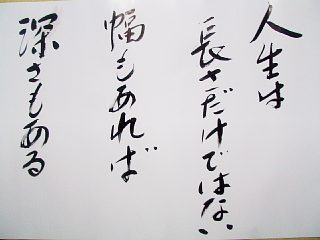 人生は
長さだけではない
幅もあれば
深さもある